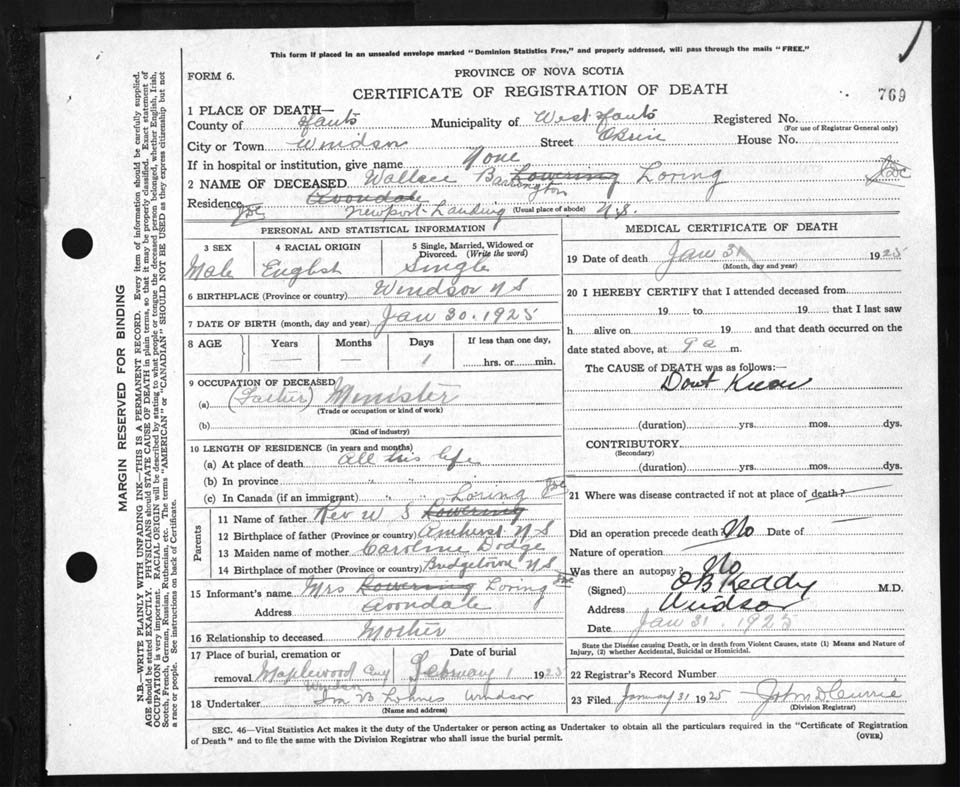 This form if placed in an unsealed envelope marked "Dominion Statistics Free," and properly addressed, will pass through the mails "FREE."
FORM 6.
PROVINCE OF NOVA SCOTIA
CERTIFICATE OF REGISTRATION OF DEATH
769
1 PLACE OF DEATH—
County of Hants Municipality of West Hants Registered No.
(For use of Registrar General only)
City or Town Windsor Street House No.
If in hospital or institution, give name None
2 NAME OF DECEASED Wallace Barrington Lowering Loring
Residence Avondale
Newport Landing (Usual place of abode) N.S.
PERSONAL AND STATISTICAL INFORMATION
3 SEX 4 RACIAL ORIGIN 5 Single, Married, Widowed or Divorced. (Write the word)
Male English Single
6 BIRTHPLACE (Province or country) Windsor N S
7 DATE OF BIRTH (month, day and year) Jan 30. 1925
8 AGE Years Months Days If less than one day,
— — 1 hrs. or min.
9 OCCUPATION OF DECEASED
(a) (Father) Menister
(Trade or occupation or kind of work)
(b)
(Kind of industry)
10 LENGTH OF RESIDENCE (in years and months)
(a) At place of death all this life
(b) In province " "
(c) In Canada (if an immigrant) " "
Loring
Parents
11 Name of father Rev W S Lowering
12 Birthplace of father (Province or country) Amherst N S
13 Maiden name of mother Caroline Dodge
14 Birthplace of mother (Province or country) Bridgetown N S
15 Informant's name Mrs Lowering Loring
Address Avondale
16 Relationship to deceased Mother
17 Place of burial, cremation or removal Date of burial
Maplewood Cey February 1 1925
Windsor
18 Undertaker Windsor
(Name and address)
MEDICAL CERTIFICATE OF DEATH
19 Date of death Jan 31 1925
(Month, day and year)
20 I HEREBY CERTIFY that I attended deceased from
19 to 19 that I last saw
h alive on 19 and that death occurred on
date stated above, at 9 a m.
The CAUSE OF DEATH was as follows:—
Dont Know
(duration) yrs. mos. dys.
CONTRIBUTORY
(Secondary)
(duration) yrs. mos. dys.
21 Where was disease contracted if not at place of death?
Did an operation precede death? No Date of
Nature of operation
Was there an autopsy? No
(Signed) O B Keddy M.D.
Address Windsor
Date Jan 31. 1925
State the Disease causing Death, or in death from Violent Causes, state (1) Means and Nature of
Injury, (2) whether Accidental, Suicidal or Homicidal.
22 Registrar's Record Number
23 Filed January 31 1925 John D Currie
(Division Registrar)
SEC. 46—Vital Statistics Act makes it the duty of the Undertaker or person acting as Undertaker to obtain all the particulars required in the "Certificate of Registration
of Death" and to file the same with the Division Registrar who shall issue the burial permit.
(OVER)
MARGIN RESERVED FOR BINDING
N.B.—WRITE PLAINLY WITH UNFADING INK—THIS IS A PERMANENT RECORD. Every item of information should be carefully supplied.
AGE should be stated EXACTLY. PHYSICIANS should STATE CAUSE OF DEATH in plain terms, so that it may be properly classified. Exact statement of
OCCUPATION is very important. RACIAL ORIGIN will be described by stating to what people or tongue the deceased person belonged, whether English, Irish,
Scotch, French, German, Russian, Ruthenian, etc. The terms "AMERICAN" or "CANADIAN" SHOULD NOT BE USED as they express citizenship but not
a race or people. See instructions on back of Certificate.